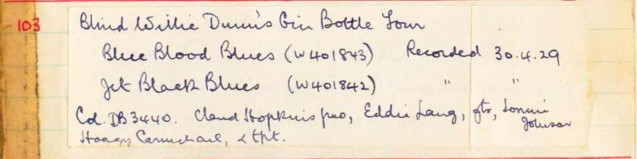 103 Blind Willie Dunn's Gin Bottle Four
Blue Blood Blues (W401843) Recorded 30.4.29
Jet Black Blues (W401842) " "
Col. DB3440. Claud Hopkins pno, Eddie Lang, gtr, Lonnie
Johnson
Hoagy Carmichael, & tpt.